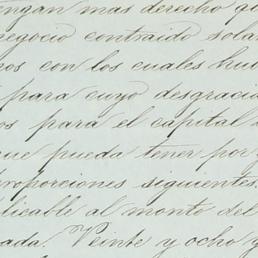 tengan mas derecho que
negocio contraido solam
nos con los cuales hub
para cuyo desgracia
os para el capital
que pueda tener por
proporciones siguientes.
plicable al monto del
ada. Veinte y ocho y